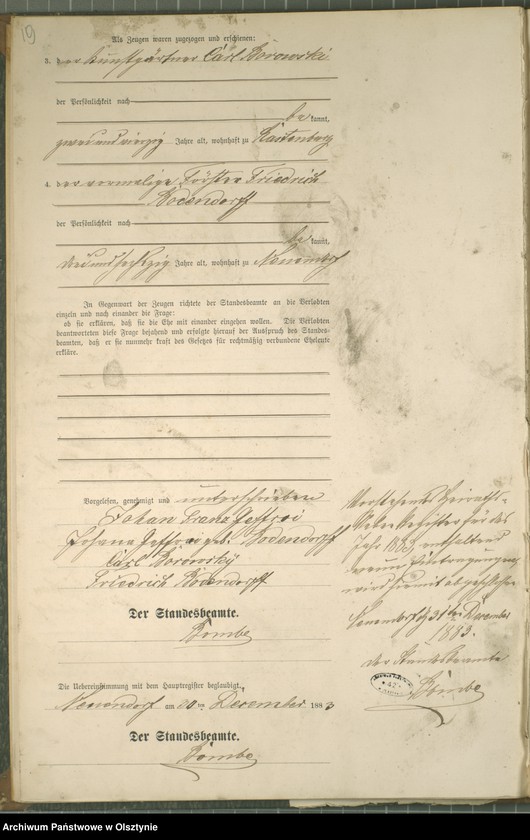 19
Als Zeugen waren zugezogen und erschienen:
3. der Kunstgärtner Carl Borowski
der Persönlichkeit nach
be kannt,
zwei und vierzig Jahre alt, wohnhaft zu Rastenburg
4. der vormalige Förster Friedrich
Rodendorff
der Persönlichkeit nach
be kannt,
drei und sechzig Jahre alt, wohnhaft zu Neuendorf
In Gegenwart der Zeugen richtete der Standesbeamte an die Verlobten
einzeln und nach einander die Frage:
ob sie erklären, daß sie die Ehe mit einander eingehen wollen. Die Verlobten
beantworteten diese Frage bejahend und erfolgte hierauf der Ausspruch des Standes-
beamten, daß er sie nunmehr kraft des Gesetzes für rechtmäßig verbundene Eheleute
erkläre.
Vorgelesen, genehmigt und unterschrieben
Johan Franz Geffroi
Johana Geffroi geb. Rodendorff
Carl Borowsky
Friedrich Rodendorff
Der Standesbeamte.
Bombe
Die Uebereinstimmung mit dem Hauptregister beglaubigt.
Neuendorf am 30ten December 1883
Der Standesbeamte.
Bombe
Vorstehendes Heiraths-
Nebenregister für das
Jahr 1883, enthaltend
neun Eintragungen
wird hiermit abgeschlossen
Neuendorf d. 31ten December
1883.
der Standesbeamte
Bombe
Archiwum Państwowe w Olsztynie